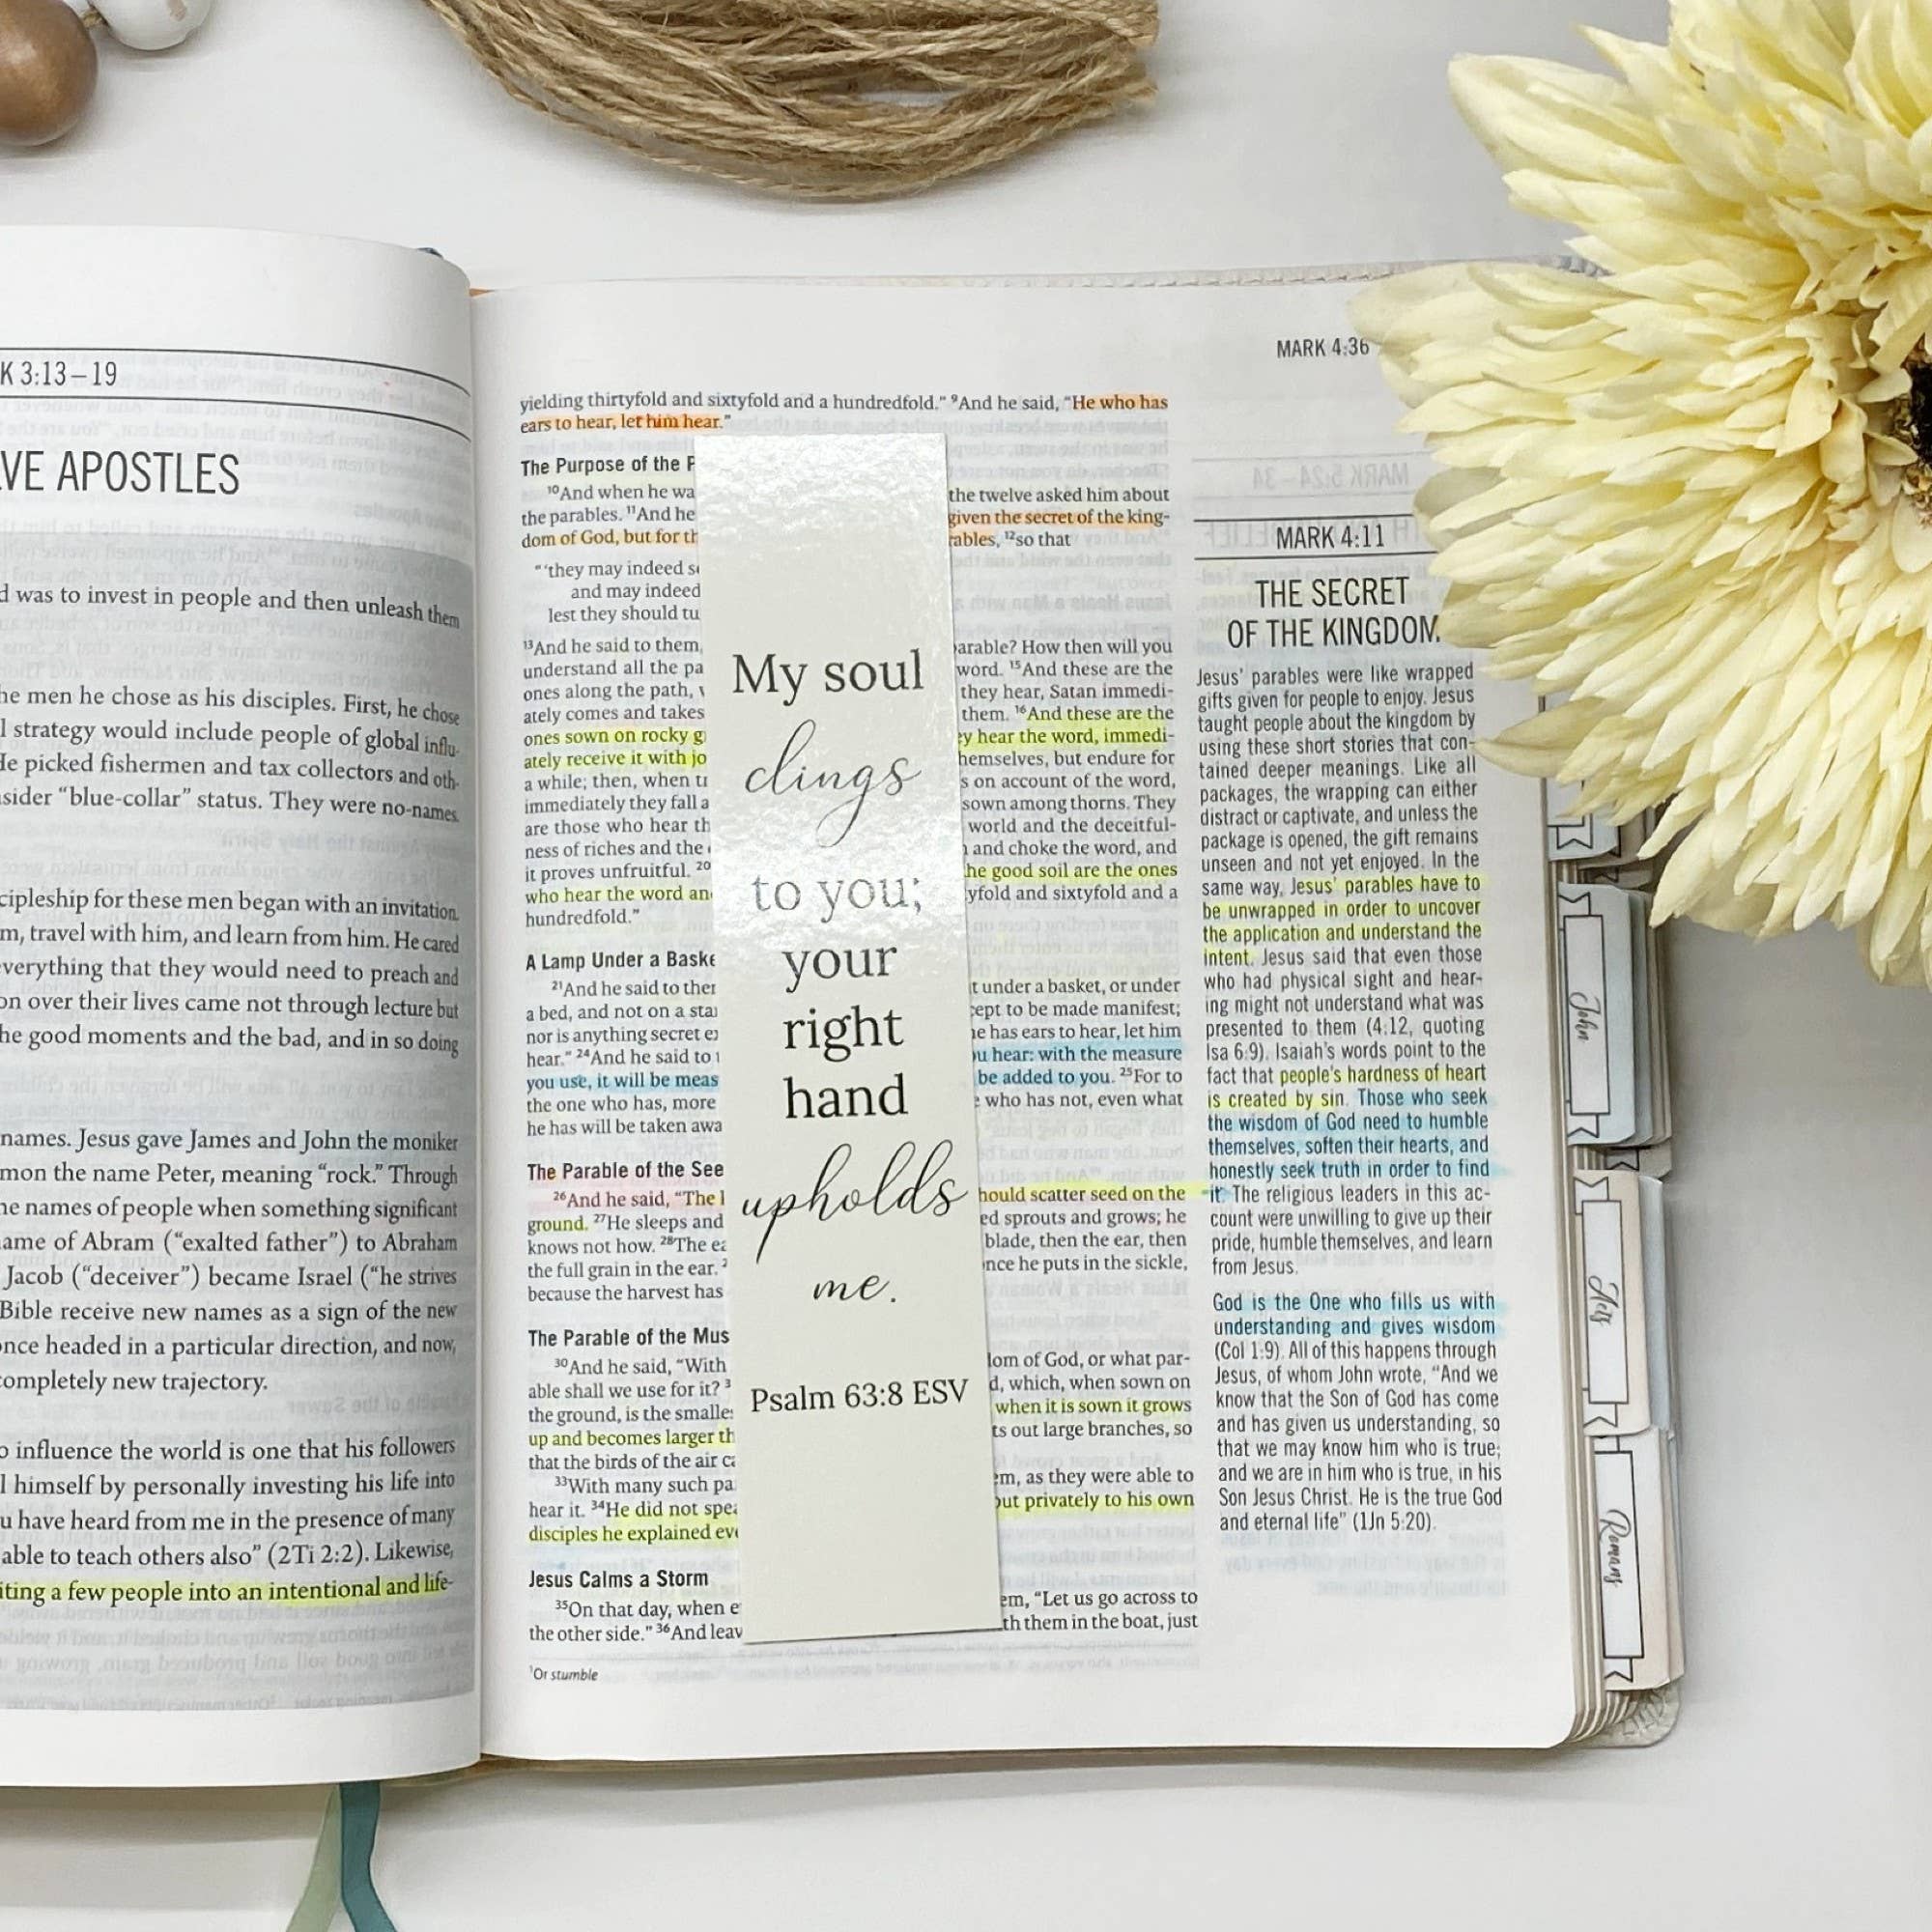 K 3:13–19
VE APOSTLES
d was to invest in people and then unleash them
he men he chose as his disciples. First, he chose
l strategy would include people of global influ-
He picked fishermen and tax collectors and oth-
sider “blue-collar” status. They were no-names
cipleship for these men began with an invitation
m, travel with him, and learn from him. He cared
verything that they would need to preach and
on over their lives came not through lecture but
he good moments and the bad, and in so doing
names. Jesus gave James and John the moniker
mon the name Peter, meaning “rock.” Through
he names of people when something significant
ame of Abram (“exalted father”) to Abraham
Jacob (“deceiver”) became Israel (“he strives
Bible receive new names as a sign of the new
once headed in a particular direction, and now,
completely new trajectory.
o influence the world is one that his followers
l himself by personally investing his life into
u have heard from me in the presence of many
able to teach others also” (2Ti 2:2). Likewise,
iting a few people into an intentional and life-
MARK 4:36
yielding thirtyfold and sixtyfold and a hundredfold.” ⁹And he said, “He who has
ears to hear, let him hear.”
The Purpose of the P
¹⁰And when he wa the twelve asked him about
the parables. ¹¹And he given the secret of the king-
dom of God, but for th rables, ¹²so that
“‘they may indeed se
and may indeed
lest they should tu
¹³And he said to them, parable? How then will you
understand all the pa word. ¹⁵And these are the
ones along the path, w they hear, Satan immedi-
ately comes and takes them. ¹⁶And these are the
ones sown on rocky g ey hear the word, immedi-
ately receive it with jo hemselves, but endure for
a while; then, when tr s on account of the word,
immediately they fall a sown among thorns. They
are those who hear th world and the deceitful-
ness of riches and the and choke the word, and
it proves unfruitful. ²⁰ he good soil are the ones
who hear the word an yfold and sixtyfold and a
hundredfold.”
A Lamp Under a Baske
²¹And he said to ther t under a basket, or under
a bed, and not on a sta cept to be made manifest;
nor is anything secret ex e has ears to hear, let him
hear.” ²⁴And he said to t u hear: with the measure
you use, it will be meas be added to you. ²⁵For to
the one who has, more who has not, even what
he has will be taken awa
The Parable of the See
²⁶And he said, “The hould scatter seed on the
ground. ²⁷He sleeps and ed sprouts and grows; he
knows not how. ²⁸The ea blade, then the ear, then
the full grain in the ear. ² nce he puts in the sickle,
because the harvest has
The Parable of the Mus
³⁰And he said, “With dom of God, or what par-
able shall we use for it? ³ d, which, when sown on
the ground, is the smalle when it is sown it grows
up and becomes larger th ts out large branches, so
that the birds of the air ca
³³With many such pa em, as they were able to
hear it. ³⁴He did not spea but privately to his own
disciples he explained eve
Jesus Calms a Storm
³⁵On that day, when e em, “Let us go across to
the other side.” ³⁶And leav th them in the boat, just
¹Or stumble
My soul
clings
to you;
your
right
hand
upholds
me.
Psalm 63:8 ESV
MARK 4:11
THE SECRET
OF THE KINGDOM
Jesus’ parables were like wrapped
gifts given for people to enjoy. Jesus
taught people about the kingdom by
using these short stories that con-
tained deeper meanings. Like all
packages, the wrapping can either
distract or captivate, and unless the
package is opened, the gift remains
unseen and not yet enjoyed. In the
same way, Jesus’ parables have to
be unwrapped in order to uncover
the application and understand the
intent. Jesus said that even those
who had physical sight and hear-
ing might not understand what was
presented to them (4:12, quoting
Isa 6:9). Isaiah’s words point to the
fact that people’s hardness of heart
is created by sin. Those who seek
the wisdom of God need to humble
themselves, soften their hearts, and
honestly seek truth in order to find
it. The religious leaders in this ac-
count were unwilling to give up their
pride, humble themselves, and learn
from Jesus.
God is the One who fills us with
understanding and gives wisdom
(Col 1:9). All of this happens through
Jesus, of whom John wrote, “And we
know that the Son of God has come
and has given us understanding, so
that we may know him who is true;
and we are in him who is true, in his
Son Jesus Christ. He is the true God
and eternal life” (1Jn 5:20).
John
Acts
Romans